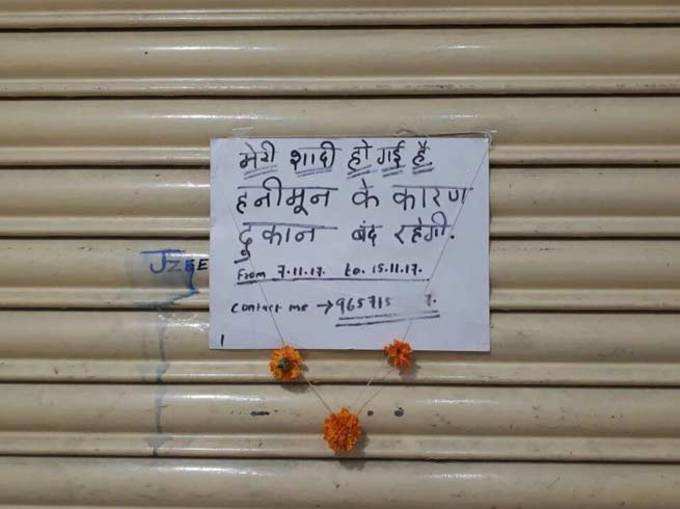 मेरी शादी हो गई है
हनीमून के कारण
दुकान बंद रहेगी.
From 7.11.17. to. 15.11.17.
contact me → 965715 7.
JZEE